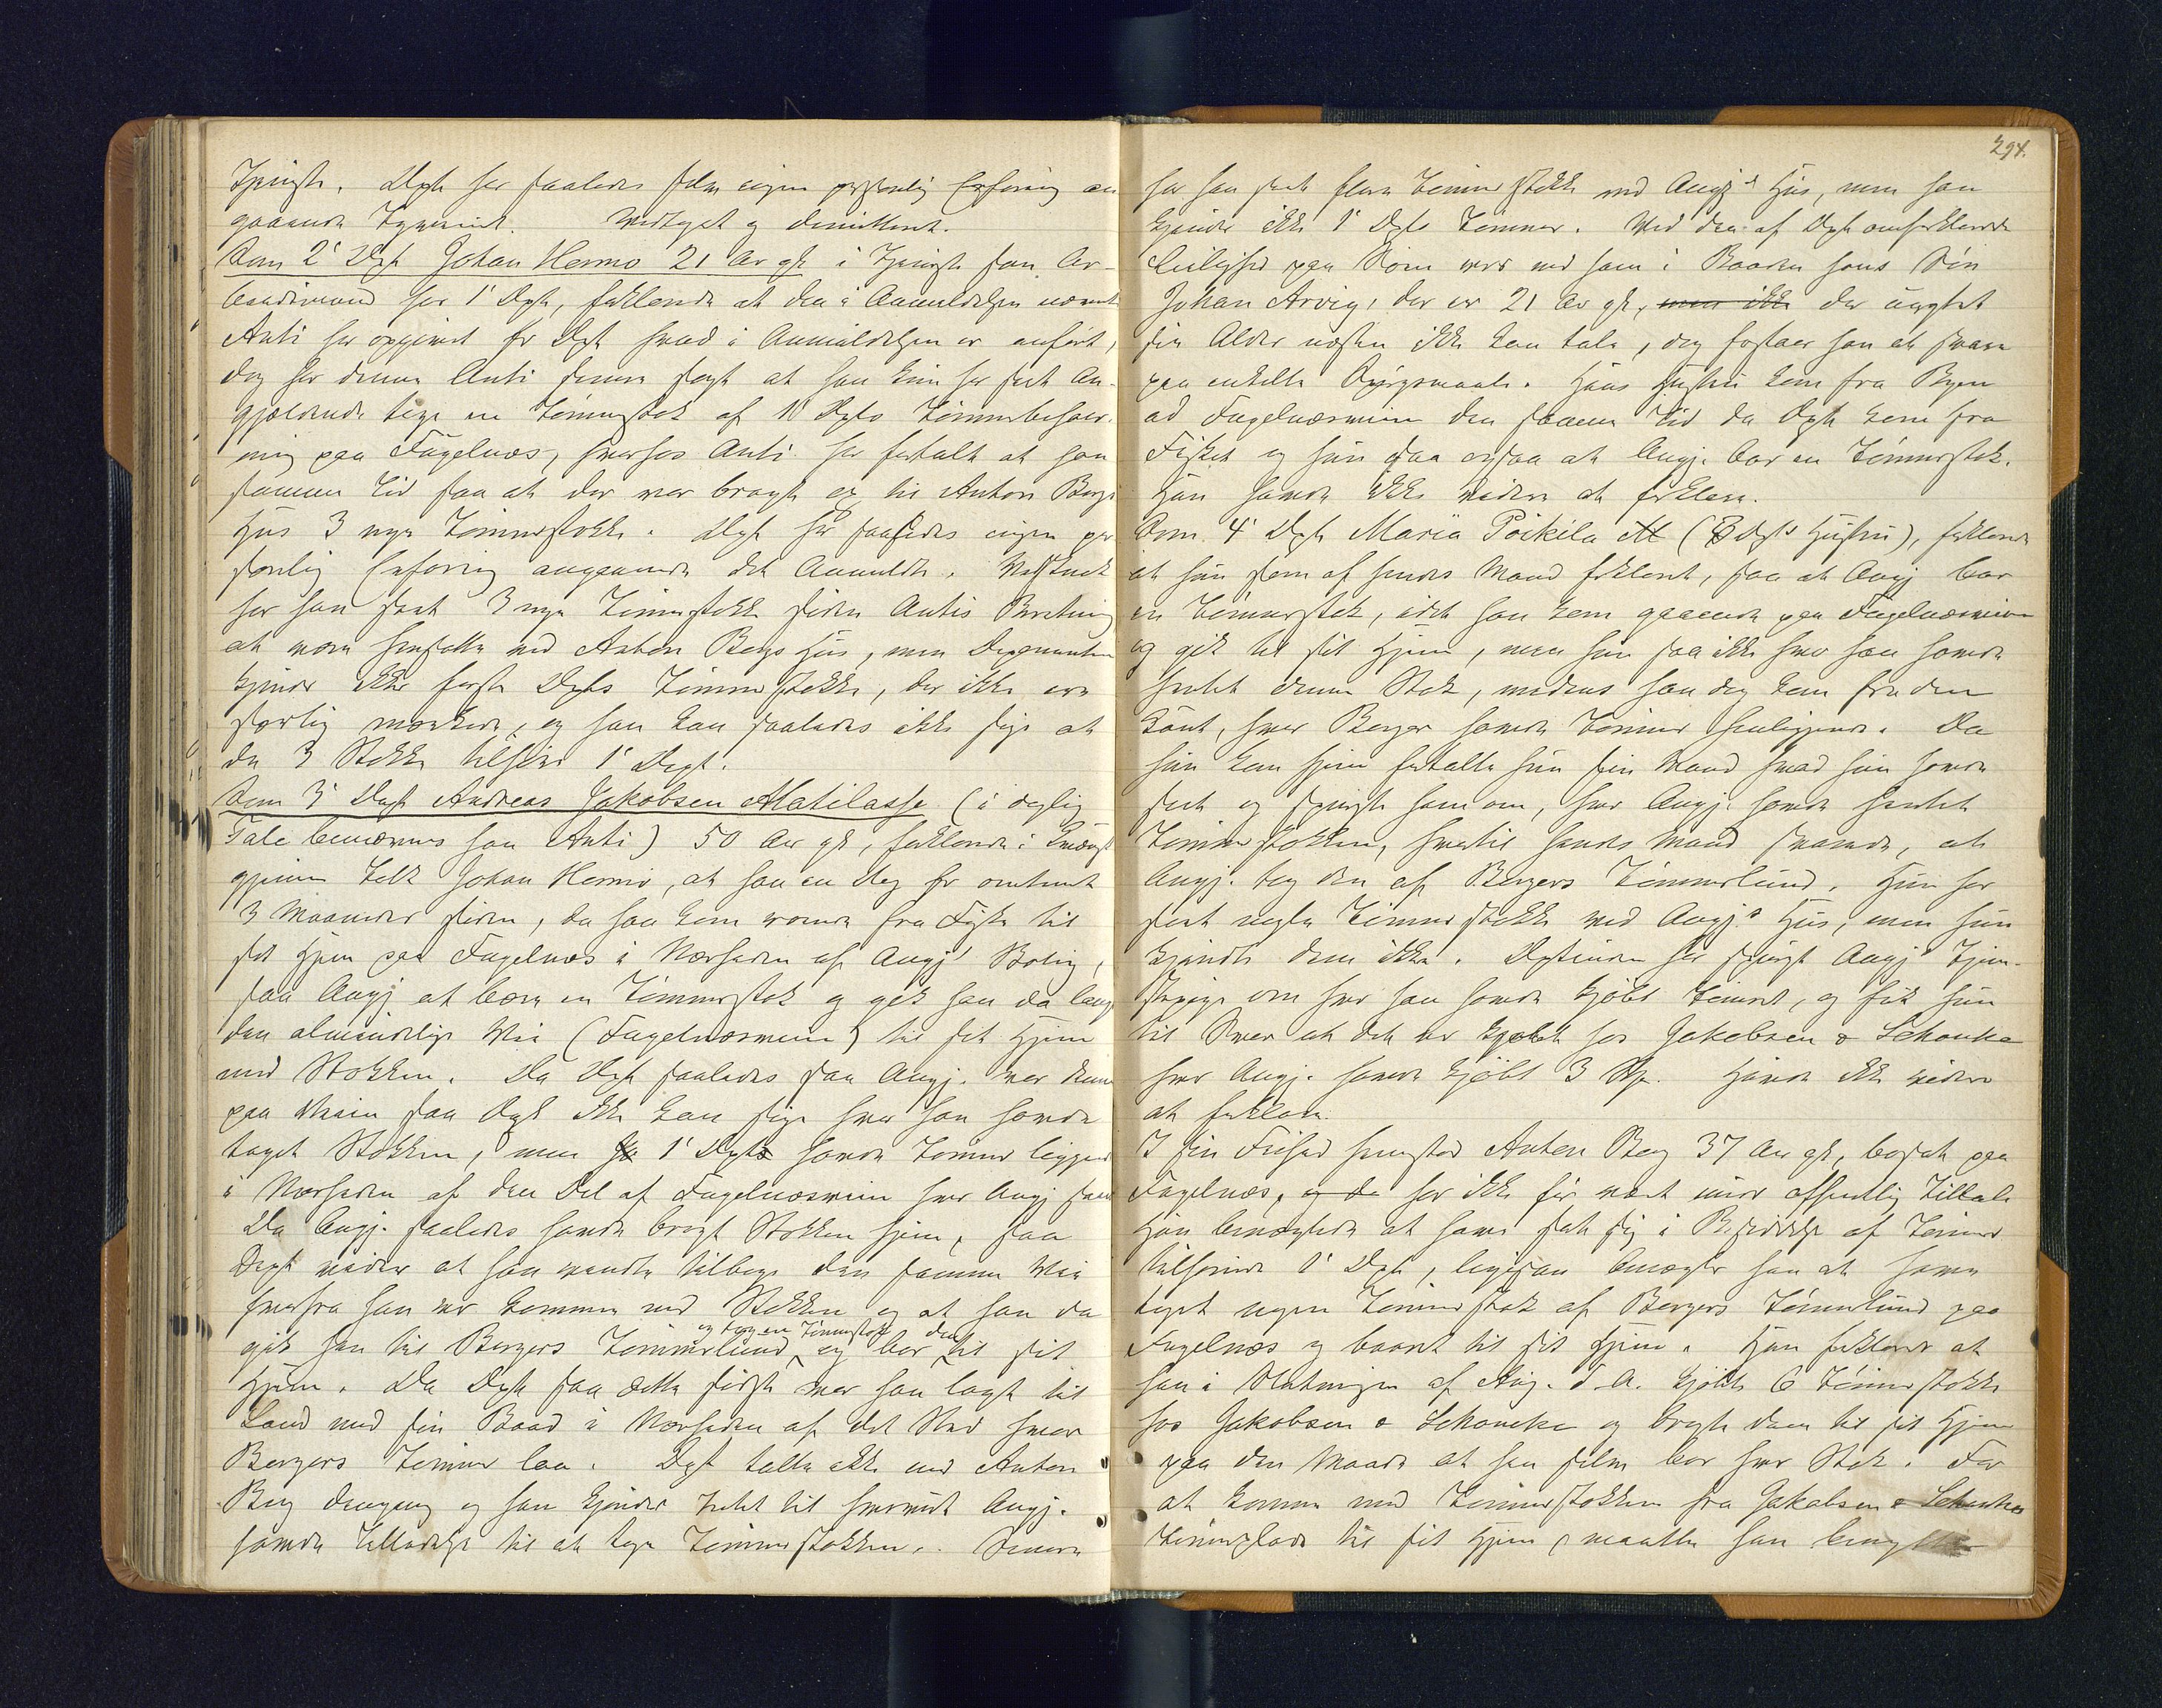 Tjeneste. Dept har saaledes selv ingen personlig Erfaring an-
gaaende Tyveriet. Vedtaget og dimitteret.
Som 2' Dept Johan Hermo 21 Aar gl. i Tjeneste som Ar-
beidsmand hos 1' Dept, forklarede at den i Anmeldelsen nævnte
Anti har opgivet for Dept hvad i Anmeldelsen er anført,
dog har denne Anti senere sagt at han kun har seet An-
gjældende tage en Tømmerstok af 1' Depts Tømmerbehold-
ning paa Fugelnæs, hvorhos Anti har fortalt at han
samme Tid saa at der var bragt op til Anton Bergs
Hus 3 nye Tømmerstokke. Dept har saaledes ingen per-
sonlig Erfaring angaaende det Anmeldte.
har han seet 3 nye Tømmerstokke siden Antis Beretning
at være hensatte ved Anton Bergs Hus, men Deponenten
kjender ikke første Depts Tømmerstokke, der ikke ere
særlig mærkede, og han kan saaledes ikke sige at
de 3 Stokke tilhører 1' Dept.
Som 3' Dept Andreas Jakobsen Matilasse (i daglig
Tale benævnes han Anti) 50 Aar gl, forklarede i Kvænsk
gjennem Tolk Johan Hermo, at han en Dag for omtrent
3 Maaneder siden, da han kom roende fra Fiske til
sit Hjem paa Fugelnæs i Nærheden af Angj' Bolig,
saa Angj at bære en Tømmerstok og gik han da langs
den almindelige Vei (Fugelnæsveien) til sit Hjem
med Stokken. Da Dept saaledes saa Angj. var denne
paa Veien saa Dept ikke kan sige hvor han havde
taget Stokken, men 1' Depts havde Tømmer liggende
i Nærheden af den Del af Fugelnæsveien hvor Angj saaes
Da Angj. saaledes havde bragt Stokken hjem, saa
Dept videre at han vendte tilbage den samme Vei
hvorfra han var kommen med Stokken og at han da
og tog en Tømmerstok den
gik hen til Bergers Tømmerlund og bar til sit
Hjem. Da Dept saa dette sidste var han lagt til
Land med sin Baad i Nærheden af det Sted hvor
Bergers Tømmer laa. Dept talte ikke med Anton
Berg dengang og han kjender Intet til hvorvidt Angj.
havde Tilladelse til at tage Tømmerstokken. Senere
294.
har han seet flere Tømmerstokke ved Angj's Hus, men han
kjender ikke 1' Depts Tømmer. Ved den af Dept omforklarede
Leilighed paa Søen var med ham i Baaden hans Søn
Johan Arvig, der er 21 Aar gl, men ikke der uagtet
sin Alder næsten ikke kan tale, dog forstaar han at svare
paa enkelte Spørgsmaale. Hans Hustru kom fra Byen
ad Fugelnæsveien den samme Tid da Dept kom fra
Fisket og hun saa ogsaa at Angj. bar en Tømmerstok.
Han havde ikke videre at forklare.
Som 4' Dept Maria Poikila (3 depts Hustru), forklarede
at hun som af hendes Mand forklaret, saa at Angj bar
en Tømmerstok, idet han kom gaaende paa Fugelnæsveien
og gik til sit Hjem, men hun saa ikke hvor han havde
hentet denne Stok, medens han dog kom fra den
Kant, hvor Berger havde Tømmer henliggende. Da
hun kom hjem fortalte hun sin Mand hvad hun havde
seet og spurgte ham om, hvor Angj. havde hentet
Tømmerstokken, hvortil hendes Mand svarede, at
Angj. tog den af Bergers Tømmerlund. Hun har
seet nogle Tømmerstokke ved Angj's Hus, men hun
kjendte dem ikke. Deptinden har spurgt Angj' Tjene-
stepige om hvor han havde kjøbt Tømret, og fik hun
til Svar at det var kjøbt hos Jakobsen & Schancke
hvor Angj. havde kjøbt 3 Stk. Havde ikke videre
at forklare.
I sin Frihed fremstod Anton Berg 37 Aar gl, bosat paa
Fugelnæs, og da har ikke før været under offentlig Tiltale
Han benægtede at have sat sig i Besiddelse af Tømmer
tilhørende 1' Dept, ligesaa benægter han at have
taget nogen Tømmerstok af Bergers Tømmerlund paa
Fugelnæs og baaret til sit Hjem. Han forklarer at
han i Slutningen af Aug. d. A. kjøbte 6 Tømmerstokke
hos Jakobsen & Schancke og bragte dem til sit Hjem
paa den Maade at han selv bar hver Stok. For
at komme med Tømmerstokken fra Jakobsen & Schanckes
Tømmerplads til sit Hjem maatte han benytte